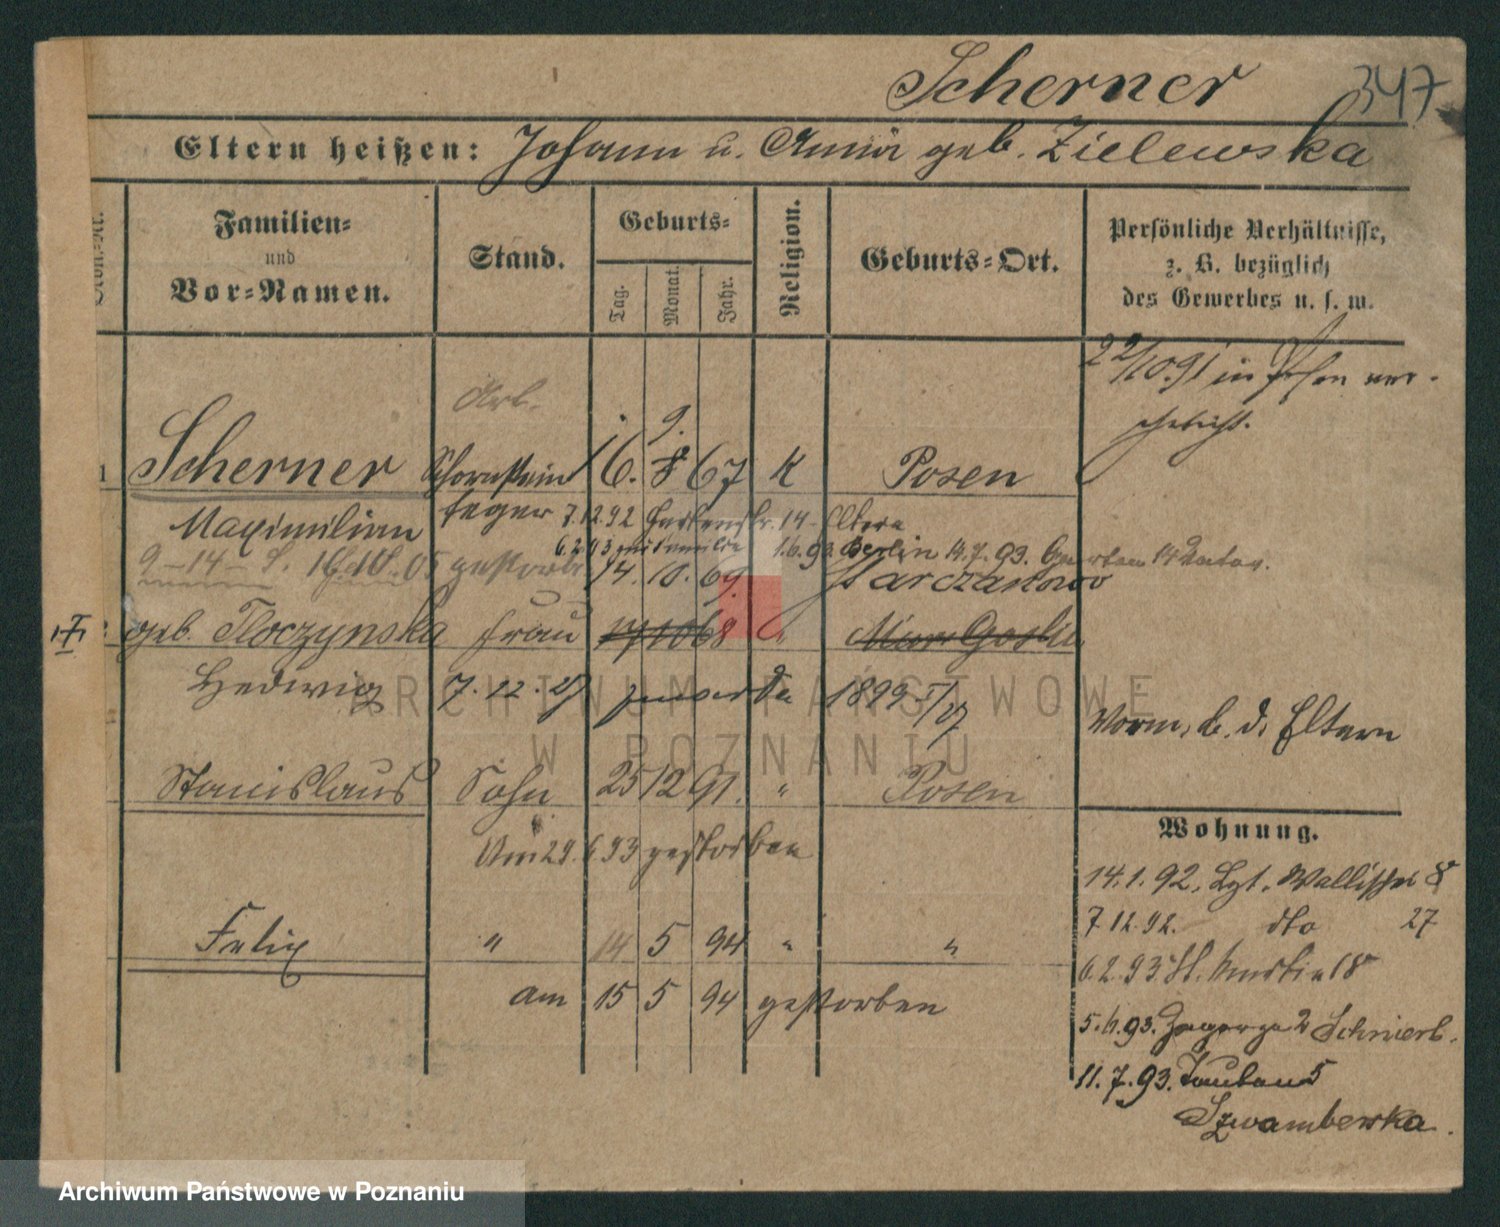 Scherner 347
Eltern heißen: Johann u. Anna geb. Zielewska
Familien-
und
Vor-Namen.
Stand.
Geburts-
Tag.
Monat.
Jahr.
Religion.
Geburts-Ort.
Persönliche Verhältnisse,
z. B. bezüglich
des Gewerbes u. s. w.
22/10.91 in Posen ver-
ehelicht.
Arb.
9.
1 Scherner Schornstein 16. 8 67 K Posen
Maximilian feger 7.12.92 14 Eltern
6.2.93 1.6.93 Berlin 14.7.93.
9-14 gestorb. 14. 10. 69. Parczanowo
geb. Tloczynska Frau 17 10 68 " Mur Goslin
Hedwig 7. 12. 27 1899
Vorm. b. d. Eltern
Stanislaus Sohn 25 12 91. " Posen
Am 29. 6 93 gestorben
Wohnung.
14. 1. 92. Wallischei 8
7.12.92. dto 27
Felix " 14 5 94 " "
6.2.93 St. Martin 18
am 15 5 94 gestorben
5.6.93. Zagorze 2 Schnierb.
11.7.93. Tauben 5
Szwamberska.
ARCHIWUM PAŃSTWOWE
W POZNANIU
Archiwum Państwowe w Poznaniu